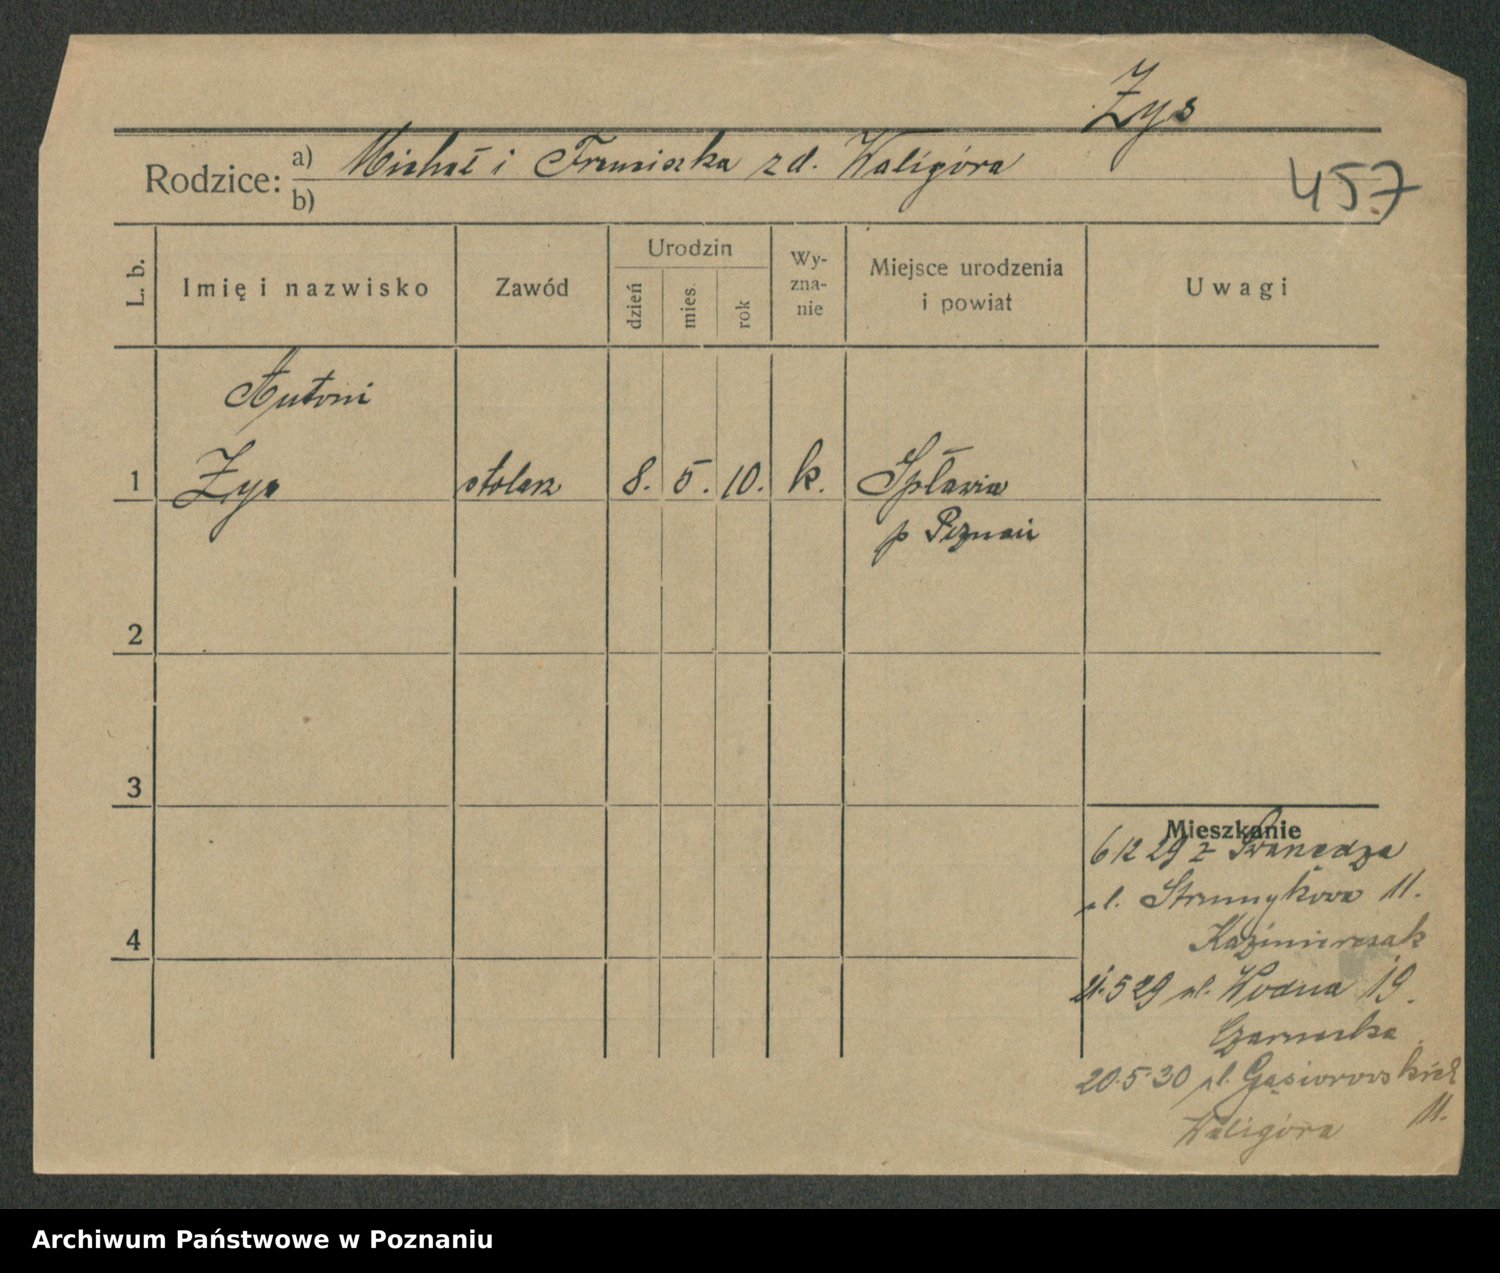 Żys
Rodzice: a) Michał i Franciszka z d. Waligóra
b)
457
L. b.
Imię i nazwisko
Zawód
Urodzin
dzień
mies.
rok
Wy-
zna-
nie
Miejsce urodzenia
i powiat
Uwagi
Antoni
1 Żys stolarz 8. 5. 10. k. Spławia
p Poznań
2
3
Mieszkanie
6 12 29 z Swarzędza
ul. Strumykowa 11.
Kazimierczak
4
21.5 29 ul. Wodna 19.
Czarnecka
20.5.30 ul. Gąsiorowskich
11.
Waligóra
Archiwum Państwowe w Poznaniu